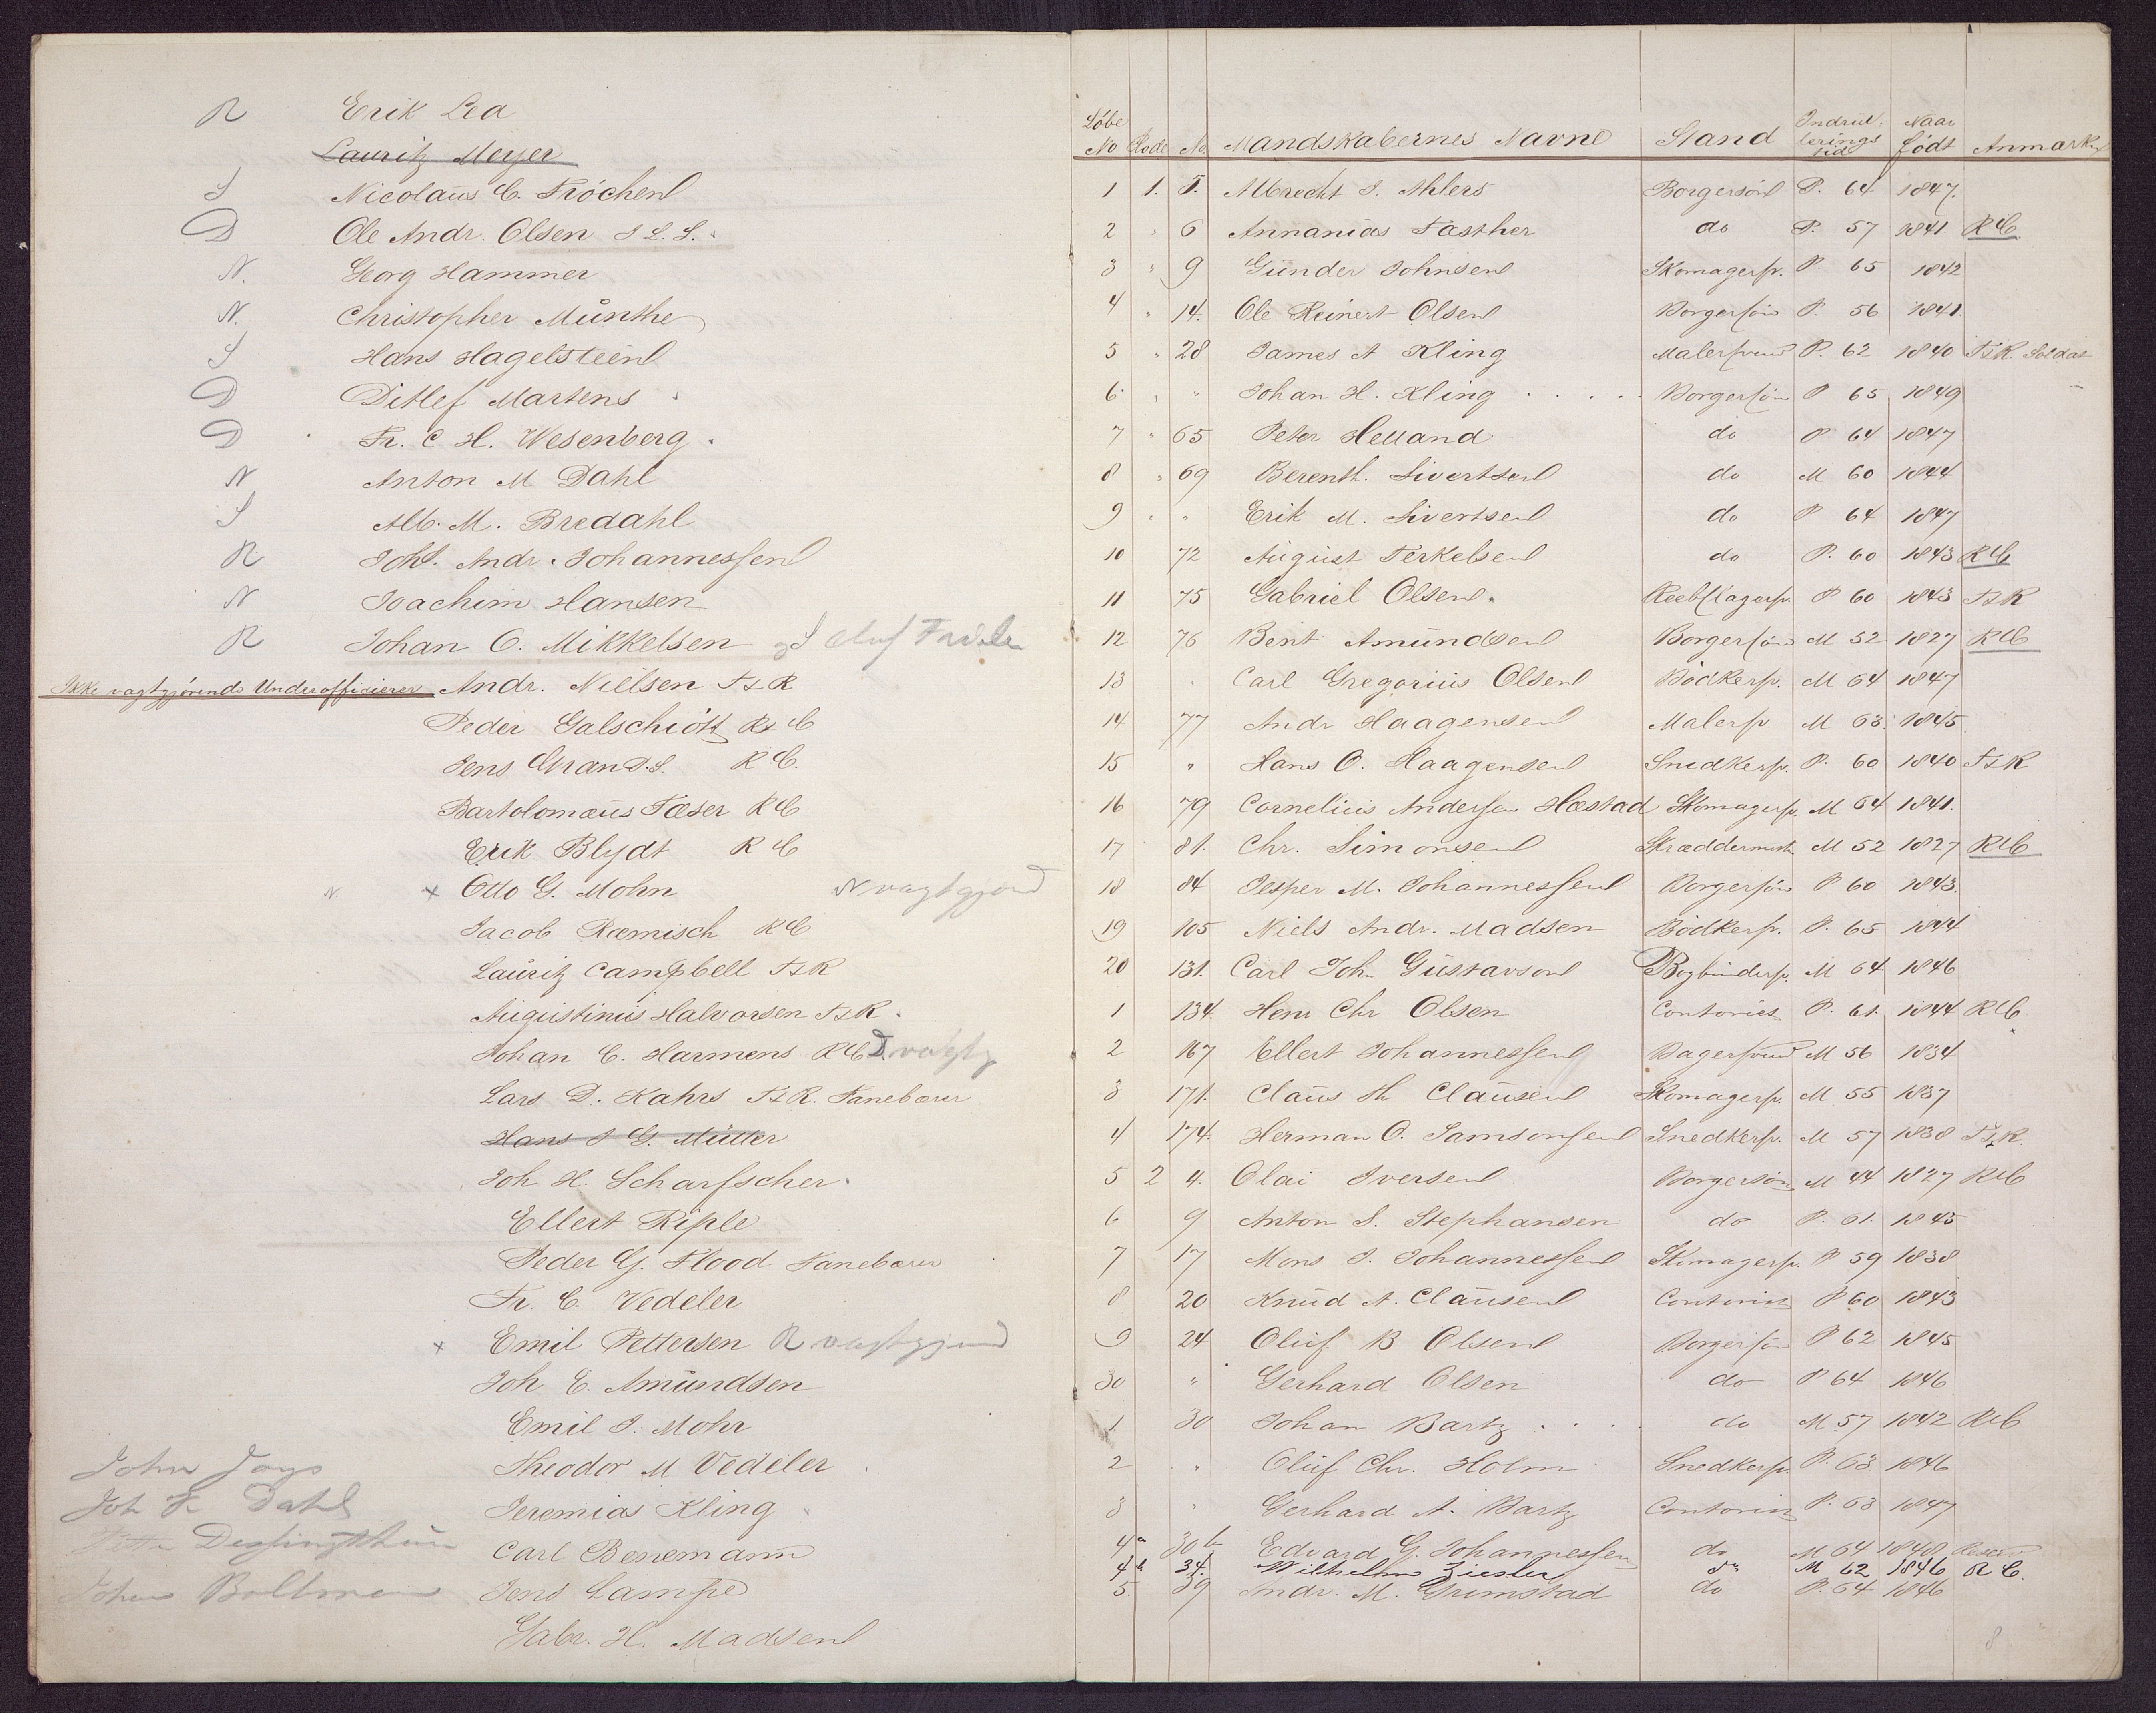 R Erik Lea
Lauritz Meyer
S Nicolaus C. Tröchen
D Ole Andr. Olsen S L. S.
N. Georg Hammer
N. Christopher Münthe
S Hans Hagelsteen
D Ditlef Martens
D Fr. C H. Wesenberg.
N Anton M Dahl
S Alb. M. Bredahl
R Joh. Andr. Johannessen
N Joachim Hansen
R Johan O. Mikkelsen
Ikke vagtgjörende Underofficierer Andr. Nielsen TsR
Peder Galschiött R C
Jens Gran D.S. R C.
Bartolomæus Fæser R C
Erik Blydt R C
N. x Otto G. Mohn N vagtgjørd
Jacob Ræmisch R C
Lauritz Campbell TsR
Augustinus Halvorsen TsR.
Johan C. Harmens R C D. vagtg
Lars D. Kahrs TsR. Fanebærer
Hans J G. Müller
Joh H. Scharfscher.
Ellert Riple
Peder G. Flood Fanebærer
Fr. C. Vedeler
x Emil Pettersen R vagtgjørd
Joh E. Amundsen
Emil J. Mohr
Theodor M Vedeler
John Joys
Joh F. Dahl
Jeremias Kling
Carl Benemann
Johan Boltman Jens Lampe
Gabr. H. Madsen
Löbe No Rode No Mandskabernes Navne Stand Indrulleringstid Naar födt Anmærkn
1 1. 5. Albrecht J. Ahlers Borgersön P. 64 1847.
2 " 6 Annanias Fästher do P. 57 1841. RC
3 " 9 Günder Johnsen Skomagersv. P. 65 1842
4 " 14. Ole Reinert Olsen Borgersön P. 56 1841.
5 " 28 James A Kling Malersvend P. 62 1840 TsR Soldat
6 " " Johan H. Kling Borgersön P 65 1849
7 " 65 Peter Helland do P 64 1847
8 " 69 Berenth. Sivertsen do M 60 1844
9 " " Erik M. Sivertsen do P 64 1847
10 72 August Terkelsen do P. 60 1843 RC
11 75 Gabriel Olsen. Reebslagersv. P 60 1843 TsR
12 76 Bent Amundsen Borgersön M 52 1827 RC
13 " Carl Gregorius Olsen Bödkersv. M 64 1847
14 77 Andr Haagensen Malersv. M 63. 1845
15 " Hans O. Haagensen Snedkersv. P. 60 1840 TsR
16 79 Cornelius Andersen Hæstad Skomagersv. M 64 1841.
17 81. Chr. Simonsen Skræddermest. M 52 1827 RC
18 84 Jesper M. Johannessen Borgersön P 60 1843.
19 105 Niels Andr. Madsen Bödkersv. P. 65 1844
20 131. Carl Joh. Gustavson Bogbindersv. M 64 1846
1 134. Henr Chr Olsen Contorist P. 61. 1844 RC
2 167 Ellert Johannessen Bagersvend M 56 1834
3 171. Claus H Clausen Skomagersv. M 55 1837
4 174. Herman O. Samsonsen Snedkersv. M 57 1838 TsR.
5 2 4. Olai Iversen Borgersön M 44 1827 RC
6 9 Anton S. Stephansen do P. 61. 1845
7 17 Mons J. Johannessen Skomagersv. P 59 1838
8 20 Knud A. Clausen Contorist P 60 1843
9 24 Oluf B Olsen Borgersön P 62 1845
30 " Gerhard Olsen do P 64 1846
1 30 Johan Bartz do M 57 1842 RC
2 " Oluf Chr. Holm Snedkersv. P. 63 1846
3 " Gerhard A. Bartz Contorist P. 63 1847
4a 30b Edvard G. Johannessen do M 64 1848
4b 34. Wilhelm Ziesler do M 62 1846 R C.
5. 39 Andr. M. Grimstad do P. 64 1846
8